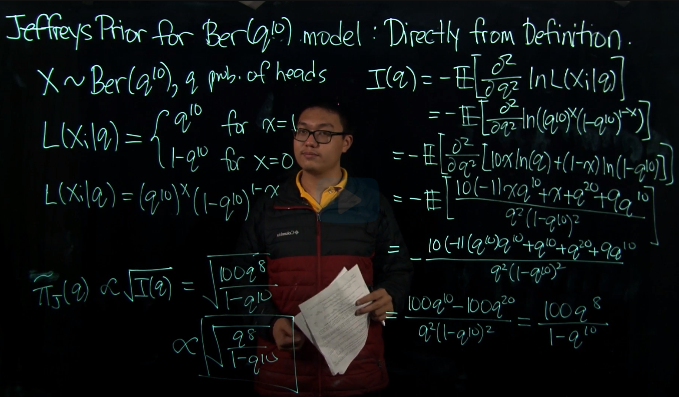 Jeffreys Prior for Ber(q¹⁰) model: Directly from Definition.
X ~ Ber(q¹⁰), q prob. of heads
L(Xᵢ|q) = { q¹⁰ for x=1
1-q¹⁰ for x=0
L(Xᵢ|q) = (q¹⁰)ˣ(1-q¹⁰)¹⁻ˣ
π̃_J(q) ∝ √I(q) = √(100q⁸/(1-q¹⁰))
∝ √(q⁸/(1-q¹⁰))
I(q) = -𝔼[∂²/∂q² ln L(Xᵢ|q)]
= -𝔼[∂²/∂q² ln((q¹⁰)ˣ(1-q¹⁰)¹⁻ˣ)]
= -𝔼[∂²/∂q² [10x ln(q) + (1-x) ln(1-q¹⁰)]]
= -𝔼[10(-11xq¹⁰+x+q²⁰+9q¹⁰)/(q²(1-q¹⁰)²)]
= -10(-11(q¹⁰)q¹⁰+q¹⁰+q²⁰+9q¹⁰)/(q²(1-q¹⁰)²)
= (100q¹⁰-100q²⁰)/(q²(1-q¹⁰)²) = 100q⁸/(1-q¹⁰)